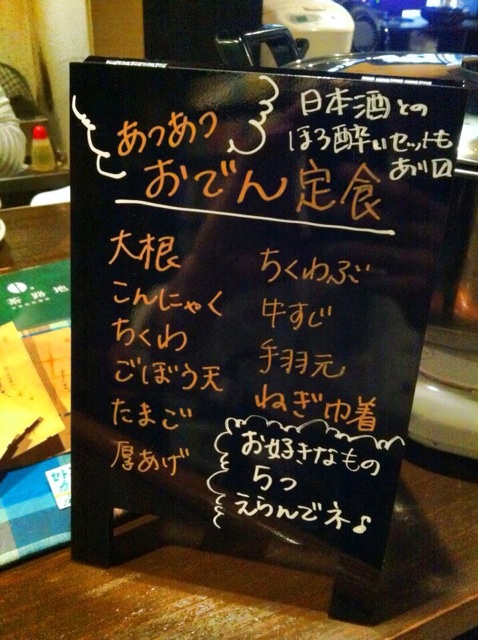 あつあつ
おでん定食
日本酒との
ほろ酔いセットも
あり口
大根
こんにゃく
ちくわ
ごぼう天
たまご
厚あげ
ちくわぶ
牛すじ
手羽元
ねぎ巾着
お好きなもの
5つ
えらんでネ♪
茶路地